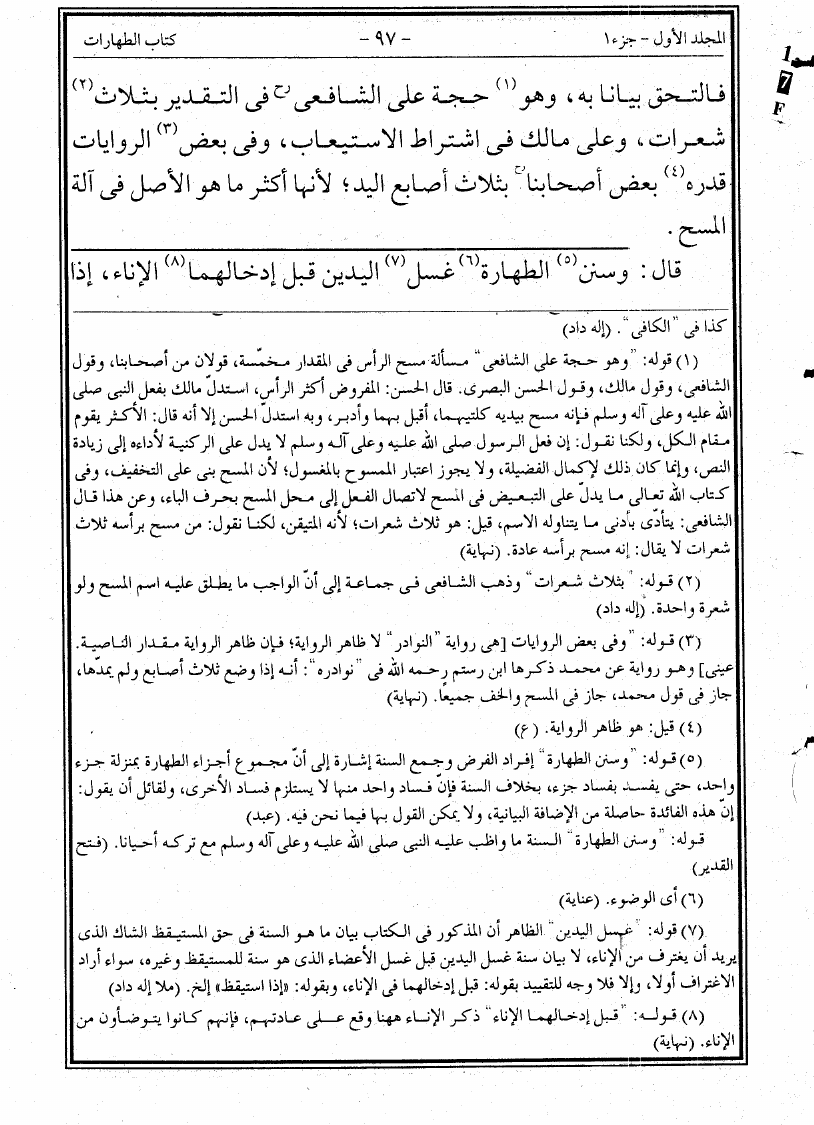 المجلد الأول - جزء١ - ٩٧ - كتاب الطهارات
فالتحق بيانا به، وهو(١) حجة على الشافعى رح فى التقدير بثلاث(٢)
شعرات، وعلى مالك فى اشتراط الاستيعاب، وفى بعض(٣) الروايات
قدره(٤) بعض أصحابنا رح بثلاث أصابع اليد؛ لأنها أكثر ما هو الأصل فى آلة
المسح.
قال: وسنن(٥) الطهارة(٦) غسل(٧) اليدين قبل إدخالهما(٨) الإناء، إذا
كذا فى "الكافى". (إله داد)
(١) قوله: "وهو حجة على الشافعى" مسألة مسح الرأس فى المقدار مخمّسة، قولان من أصحابنا، وقول
الشافعى، وقول مالك، وقول الحسن البصرى. قال الحسن: المفروض أكثر الرأس، استدلّ مالك بفعل النبى صلى
الله عليه وعلى آله وسلم فإنه مسح بيديه كلتيهما، أقبل بهما وأدبر، وبه استدلّ الحسن إلا أنه قال: الأكثر يقوم
مقام الكل، ولكنا نقول: إن فعل الرسول صلى الله عليه وعلى آله وسلم لا يدل على الركنية لأداءه إلى زيادة
النص، وإنما كان ذلك لإكمال الفضيلة، ولا يجوز اعتبار الممسوح بالمغسول؛ لأن المسح بنى على التخفيف، وفى
كتاب الله تعالى ما يدلّ على التبعيض فى المسح لاتصال الفعل إلى محل المسح بحرف الباء، وعن هذا قال
الشافعى: يتأدّى بأدنى ما يتناوله الاسم، قيل: هو ثلاث شعرات؛ لأنه المتيقن، لكنا نقول: من مسح برأسه ثلاث
شعرات لا يقال: إنه مسح برأسه عادة. (نهاية)
(٢) قوله: "بثلاث شعرات" وذهب الشافعى فى جماعة إلى أنّ الواجب ما يطلق عليه اسم المسح ولو
شعرة واحدة. (إله داد)
(٣) قوله: "وفى بعض الروايات [هى رواية "النوادر" لا ظاهر الرواية؛ فإن ظاهر الرواية مقدار الناصية.
عينى] وهو رواية عن محمد ذكرها ابن رستم رحمه الله فى "نوادره": أنه إذا وضع ثلاث أصابع ولم يمدّها،
جاز فى قول محمد، جاز فى المسح والخف جميعًا. (نهاية)
(٤) قيل: هو ظاهر الرواية. (ع)
(٥) قوله: "وسنن الطهارة" إفراد الفرض وجمع السنة إشارة إلى أنّ مجموع أجزاء الطهارة بمنزلة جزء
واحد، حتى يفسد بفساد جزء، بخلاف السنة فإنّ فساد واحد منها لا يستلزم فساد الأخرى، ولقائل أن يقول:
إنّ هذه الفائدة حاصلة من الإضافة البيانية، ولا يمكن القول بها فيما نحن فيه. (عبد)
قوله: "وسنن الطهارة" السنة ما واظب عليه النبى صلى الله عليه وعلى آله وسلم مع تركه أحيانا. (فتح
القدير)
(٦) أى الوضوء. (عناية)
(٧) قوله: "غسل اليدين" الظاهر أن المذكور فى الكتاب بيان ما هو السنة فى حق المستيقظ الشاك الذى
يريد أن يغترف من الإناء، لا بيان سنة غسل اليدين قبل غسل الأعضاء الذى هو سنة للمستيقظ وغيره، سواء أراد
الاغتراف أولا، وإلا فلا وجه للتقييد بقوله: قبل إدخالهما فى الإناء، وبقوله: «إذا استيقظ» إلخ. (ملا إله داد)
(٨) قوله: "قبل إدخالهما الإناء" ذكر الإناء ههنا وقع على عادتهم، فإنهم كانوا يتوضأون من
الإناء. (نهاية)